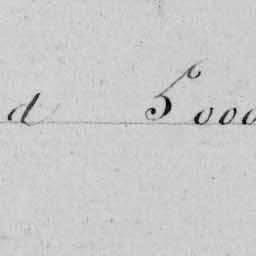 d 5000